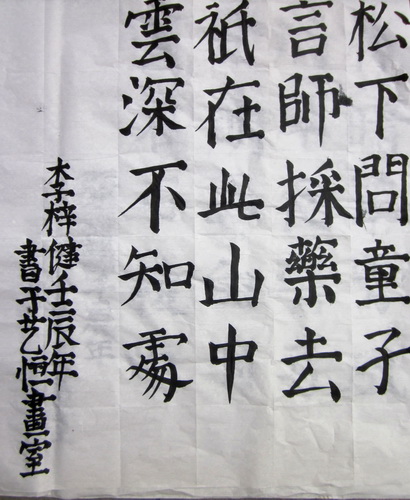 松下問童子
言師採藥去
祇在此山中
雲深不知處
李梓健壬辰年
書于艺恒畫室